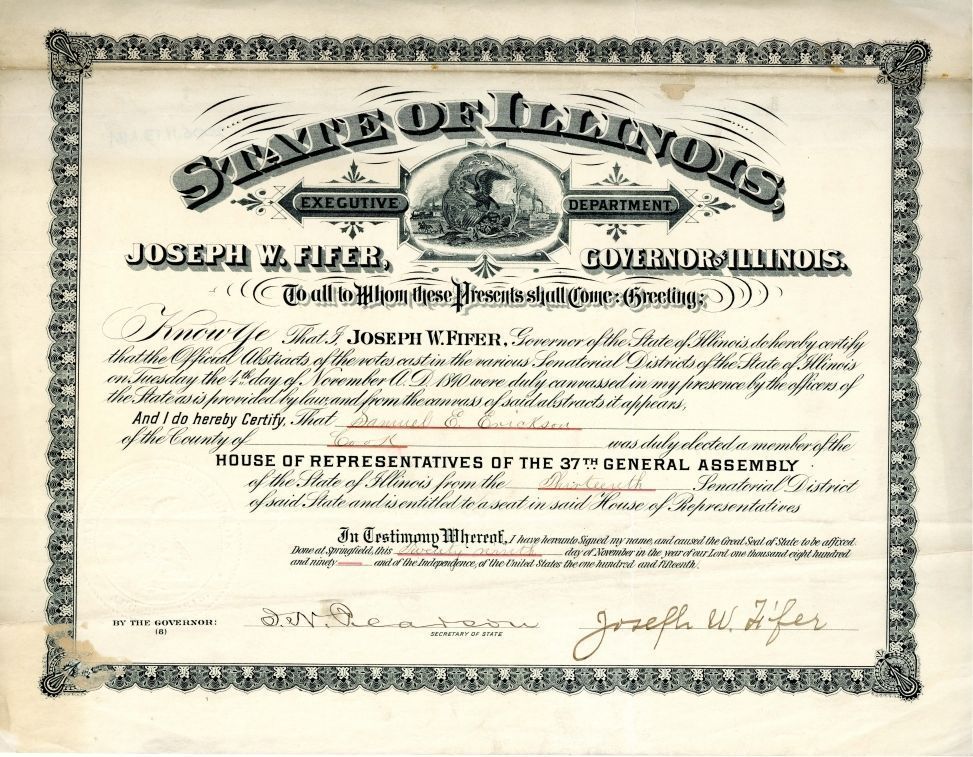 STATE OF ILLINOIS,
EXECUTIVE DEPARTMENT
JOSEPH W. FIFER, GOVERNOR OF ILLINOIS.
To all to Whom these Presents shall Come: Greeting;
Know Ye That I, JOSEPH W. FIFER, Governor of the State of Illinois do hereby certify
that the Official Abstracts of the votes cast in the various Senatorial Districts of the State of Illinois
on Tuesday the 4th day of November A.D. 1890 were duly canvassed in my presence by the officers of
the State as is provided by law, and from the canvass of said abstracts it appears,
And I do hereby Certify, That Samuel E. Erickson
of the County of Cook was duly elected a member of the
HOUSE OF REPRESENTATIVES OF THE 37TH GENERAL ASSEMBLY
of the State of Illinois from the Thirteenth Senatorial District
of said State and is entitled to a seat in said House of Representatives
In Testimony Whereof, I have hereunto Signed my name, and caused the Great Seal of State to be affixed.
Done at Springfield, this Twenty ninth day of November in the year of our Lord one thousand eight hundred
and ninety and of the Independence, of the United States the one hundred and fifteenth.
BY THE GOVERNOR: I. N. Pearson Joseph W. Fifer
(8) SECRETARY OF STATE